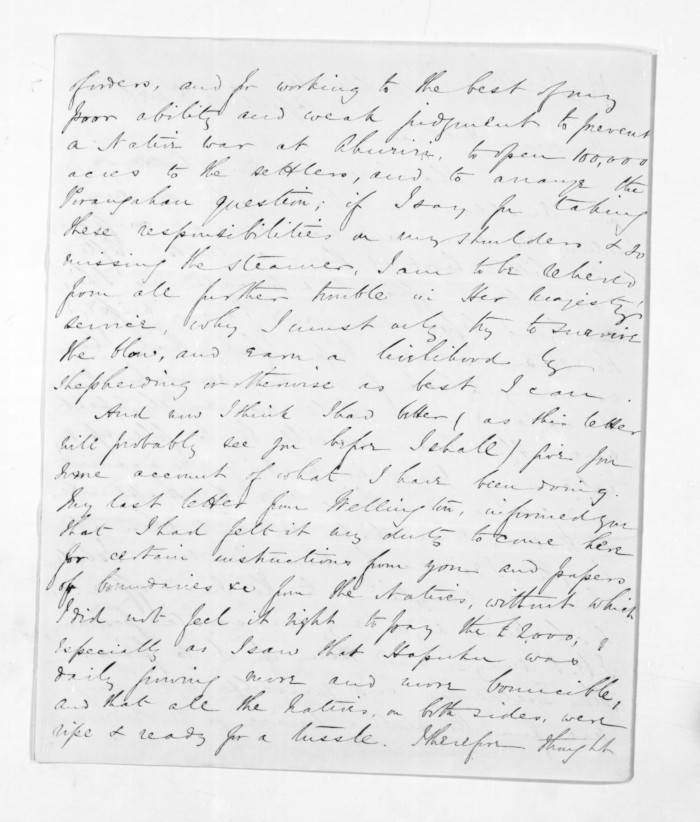 of orders, and for working to the best of my
poor ability and weak judgment to prevent
a Native war at Ahuriri, to open 100,000
acres to the settlers, and to arrange the
Porangahau question; if I say for taking
these responsibilities on my shoulders & so
missing the steamer, I am to be relieved
from all further trouble in Her Majesty's
service, why I must only try to survive
the blow, and earn a livlihood by
shepherding or otherwise as best I can.
And now I think I had better (as this letter
will probably see you before I shall) give you
some account of what I have been doing.
My last letter from Wellington, informed you
that I had felt it my duty to come here
for certain instructions from you and papers
of boundaries &c from the Natives, without which
I did not feel it right to pay the £2,000,
especially as I saw that Hapuku was
daily growing more and more
and that all the Natives, on both sides, were
ripe & ready for a tussle. I therefore thought